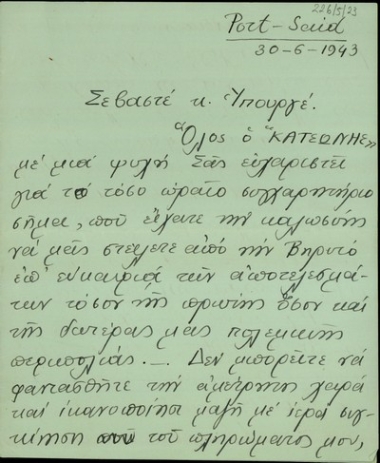 226/5/23
Port-Said
30-6-1943
Σεβαστέ κ. Ὑπουργέ.
Ὅλος ὁ "ΚΑΤΣΩΝΗΣ"
μέ μιά ψυχή Σᾶς εὐχαριστεῖ
γιά τό τόσο ὡραῖο συγχαρητήριο
σῆμα, πού εἴχατε τήν καλωσύνη
νά μᾶς στείλετε ἀπό τήν Βηρυτό
ἐπ' εὐκαιρία τῶν ἀποτελεσμά-
των τόσον τῆς πρώτης ὅσον καί
τῆς δευτέρας μας πολεμικῆς
περιπολίας.—. Δέν μπορεῖτε νά
φαντασθῆτε τήν ἀμέτρητη χαρά
καί ἱκανοποίηση μαζή μέ ἱερά συγ-
κίνηση τοῦ πληρώματος μου,